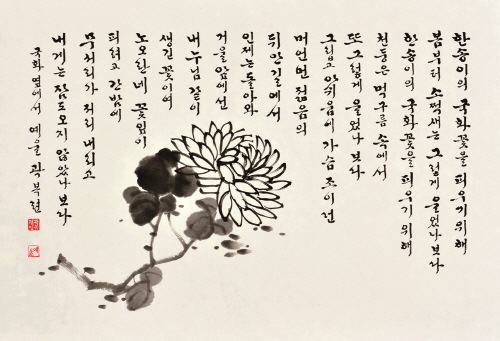 한송이의 국화꽃을 피우기 위해
봄부터 소쩍새는 그렇게 울었나 보다
한송이의 국화꽃을 피우기 위해
천둥은 먹구름 속에서
또 그렇게 울었나 보다
그립고 아쉬움에 가슴 조이던
머언먼 젊음의
뒤안길에서
인제는 돌아와
거울앞에선
내누님같이
생긴 꽃이여
노오란 네 꽃잎이
피려고 간밤에
무서리가 저리 내리고
내게는 잠도 오지 않았나 보다
국화 옆에서 예울